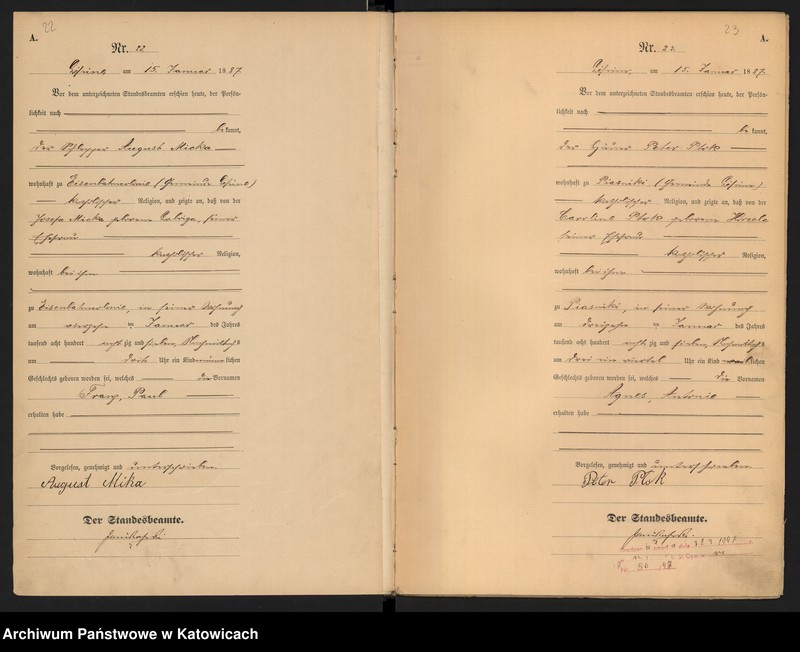 22
A.
Nr. 22
am 15. Januar 1887.
Vor dem unterzeichneten Standesbeamten erschien heute, der Persön-
lichkeit nach
be kannt,
der Schlepper August Micka
wohnhaft zu Eisenbahnkolonie (Gemeinde
katholischer Religion, und zeigte an, daß von der
Josefa Micka geborene seiner
Ehefrau
katholischer Religion,
wohnhaft bei ihm
zu Eisenbahnkolonie, in seiner Wohnung
am vierzehn ten Januar des Jahres
tausend acht hundert acht zig und sieben, Nachmittags
um drei Uhr ein Kind männlichen
Geschlechts geboren worden sei, welches die Vornamen
Franz, Paul
erhalten habe
Vorgelesen, genehmigt und unterschrieben
August Mika
Der Standesbeamte.
23
A.
Nr. 23
am 15. Januar 1887.
Vor dem unterzeichneten Standesbeamten erschien heute, der Persön-
lichkeit nach
be kannt,
der Häuer Peter Ptok
wohnhaft zu Piasniki (Gemeinde
katholischer Religion, und zeigte an, daß von der
Caroline Ptok geborene
seiner Ehefrau
katholischer Religion,
wohnhaft bei ihm
zu Piasniki, in seiner Wohnung
am dreizehn ten Januar des Jahres
tausend acht hundert acht zig und sieben, Nachmittags
um drei ein viertel Uhr ein Kind weiblichen
Geschlechts geboren worden sei, welches die Vornamen
Agnes, Antonie
erhalten habe
Vorgelesen, genehmigt und unterschrieben
Peter Ptok
Der Standesbeamte.
Archiwum Państwowe w Katowicach